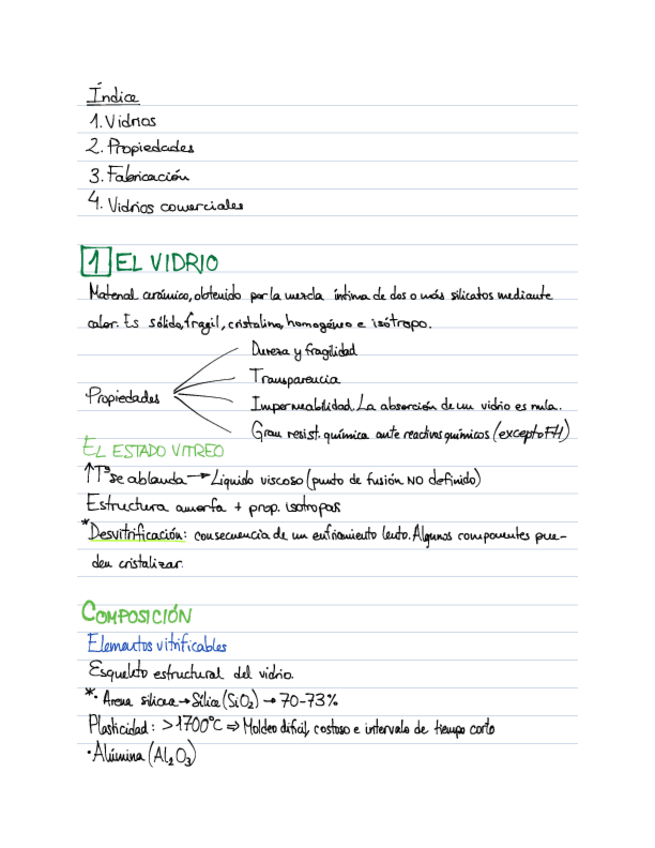 Índice
1. Vidrios
2. Propiedades
3. Fabricación
4. Vidrios comerciales
1 EL VIDRIO
Material cerámico, obtenido por la mezcla íntima de dos o más silicatos mediante
calor. Es sólido, fragil, cristalino, homogéneo e isótropo.
Propiedades
Dureza y fragilidad
Transparencia
Impermeabilidad. La absorción de un vidrio es nula.
Gran resist. química ante reactivos químicos (excepto FH)
EL ESTADO VITREO
↑Tª se ablanda → Liquido viscoso (punto de fusión NO definido)
Estructura amorfa + prop. isotropas
*Desvitrificación: consecuencia de un enfriamiento lento. Algunos componentes pue-
den cristalizar.
COMPOSICIÓN
Elementos vitrificables
Esqueleto estructural del vidrio.
*· Arena silicea → Sílice (SiO₂) → 70-73%
Plasticidad: >1700ºC ⇒ Moldeo difícil, costoso e intervalo de tiempo corto
· Alúmina (Al₂O₃)